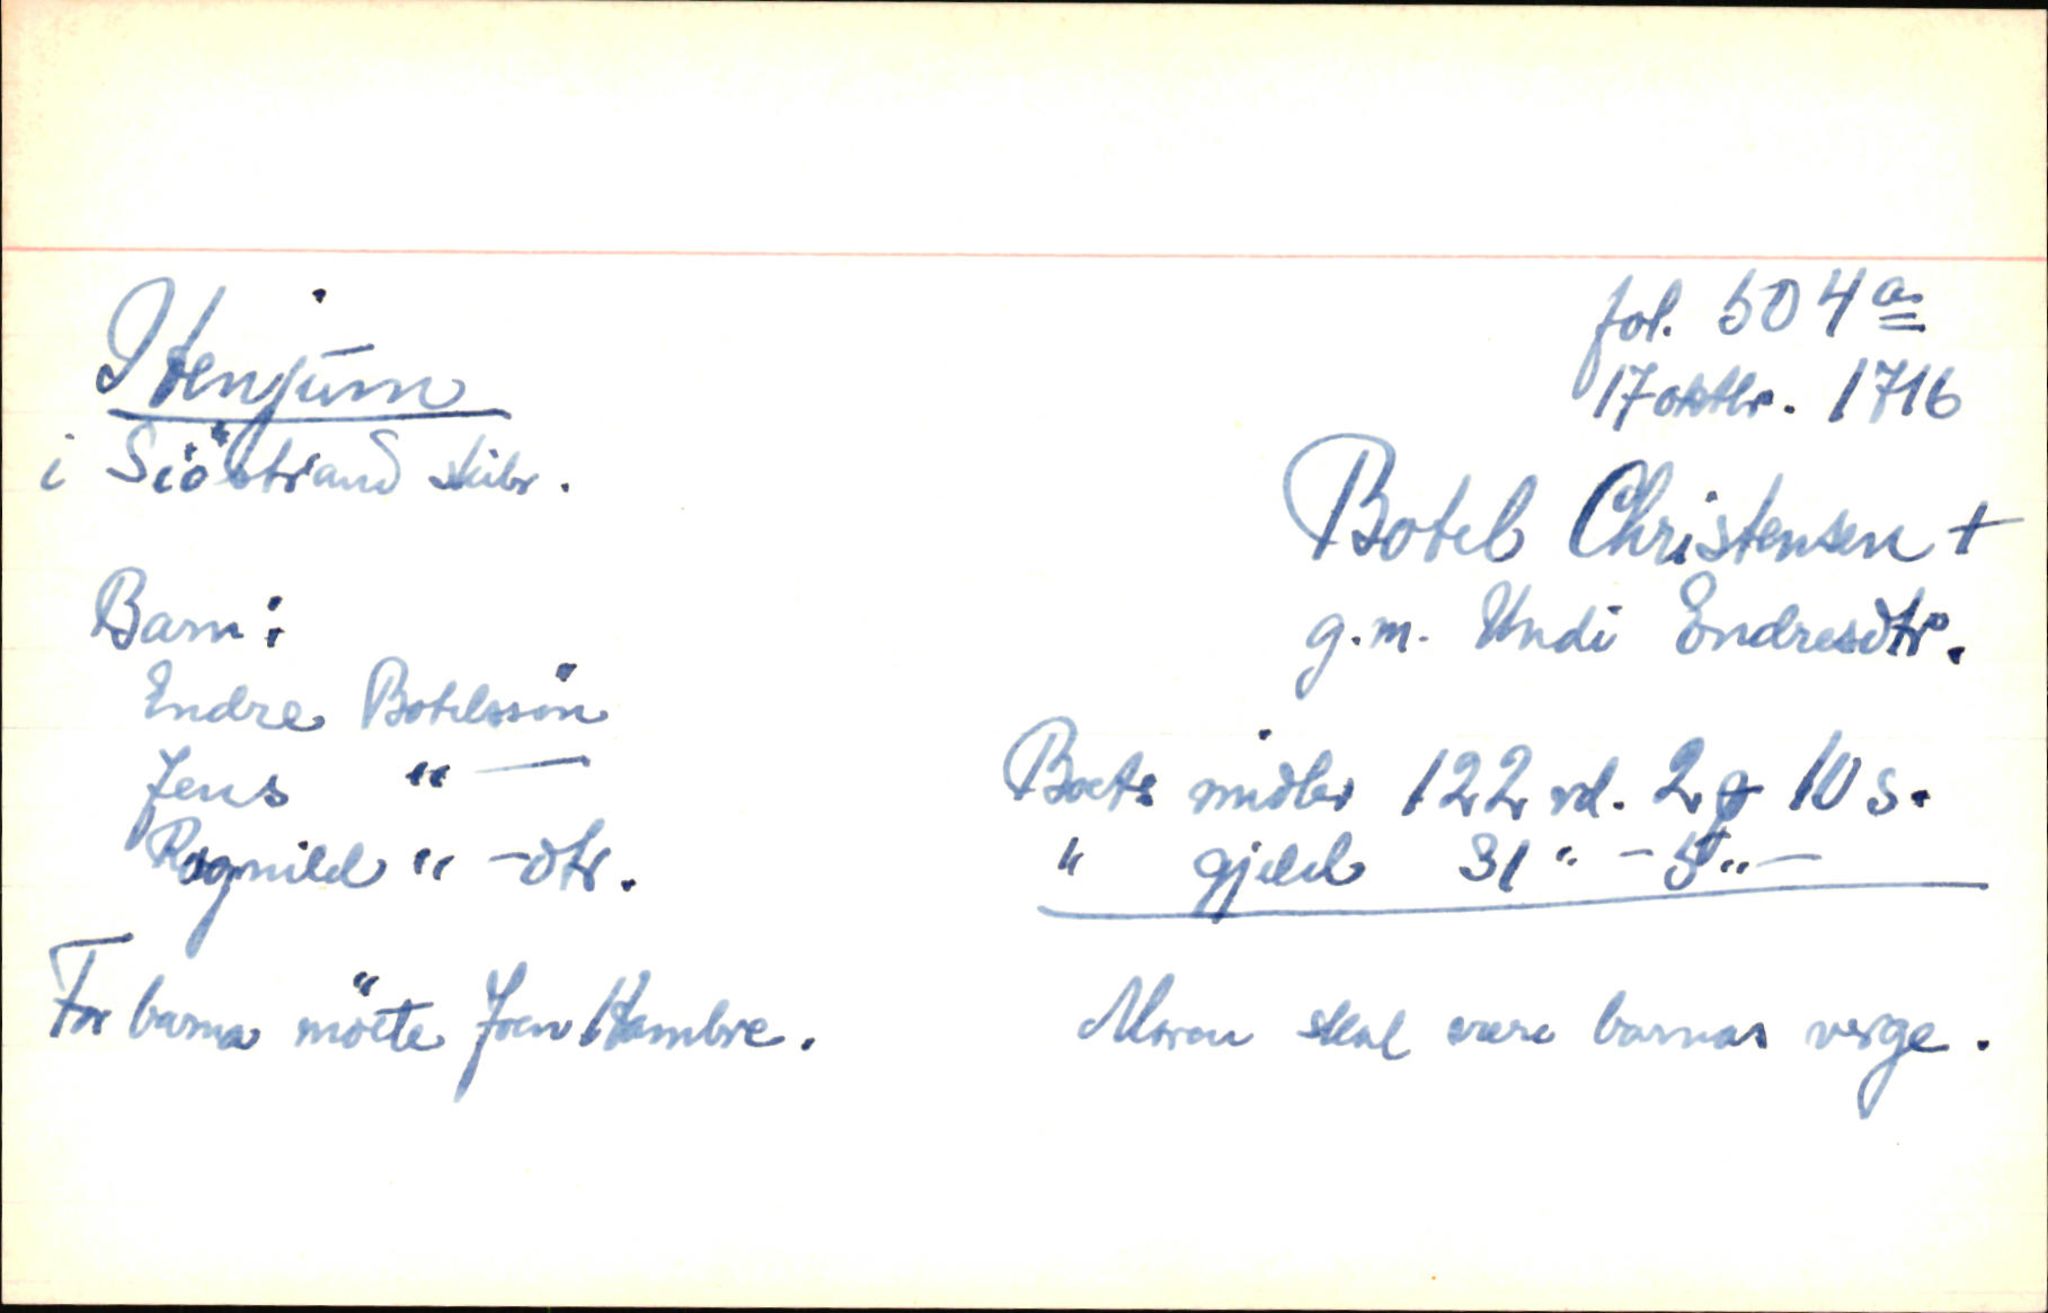 Stenjum
i Siöstrand skibr.
fol. 504a
17 oktbr. 1716
Botel Christensen +
g.m. Undi Endresdtr.
Barn:
Endre Botelssön
Jens " —
Ragnild " - dtr.
Boets midler 122 rd. 2 ƒ 10 s.
" gjeld 31 " - 5 " —
For barna mötte Joen Hambre.
Moren skal være barnas verge.